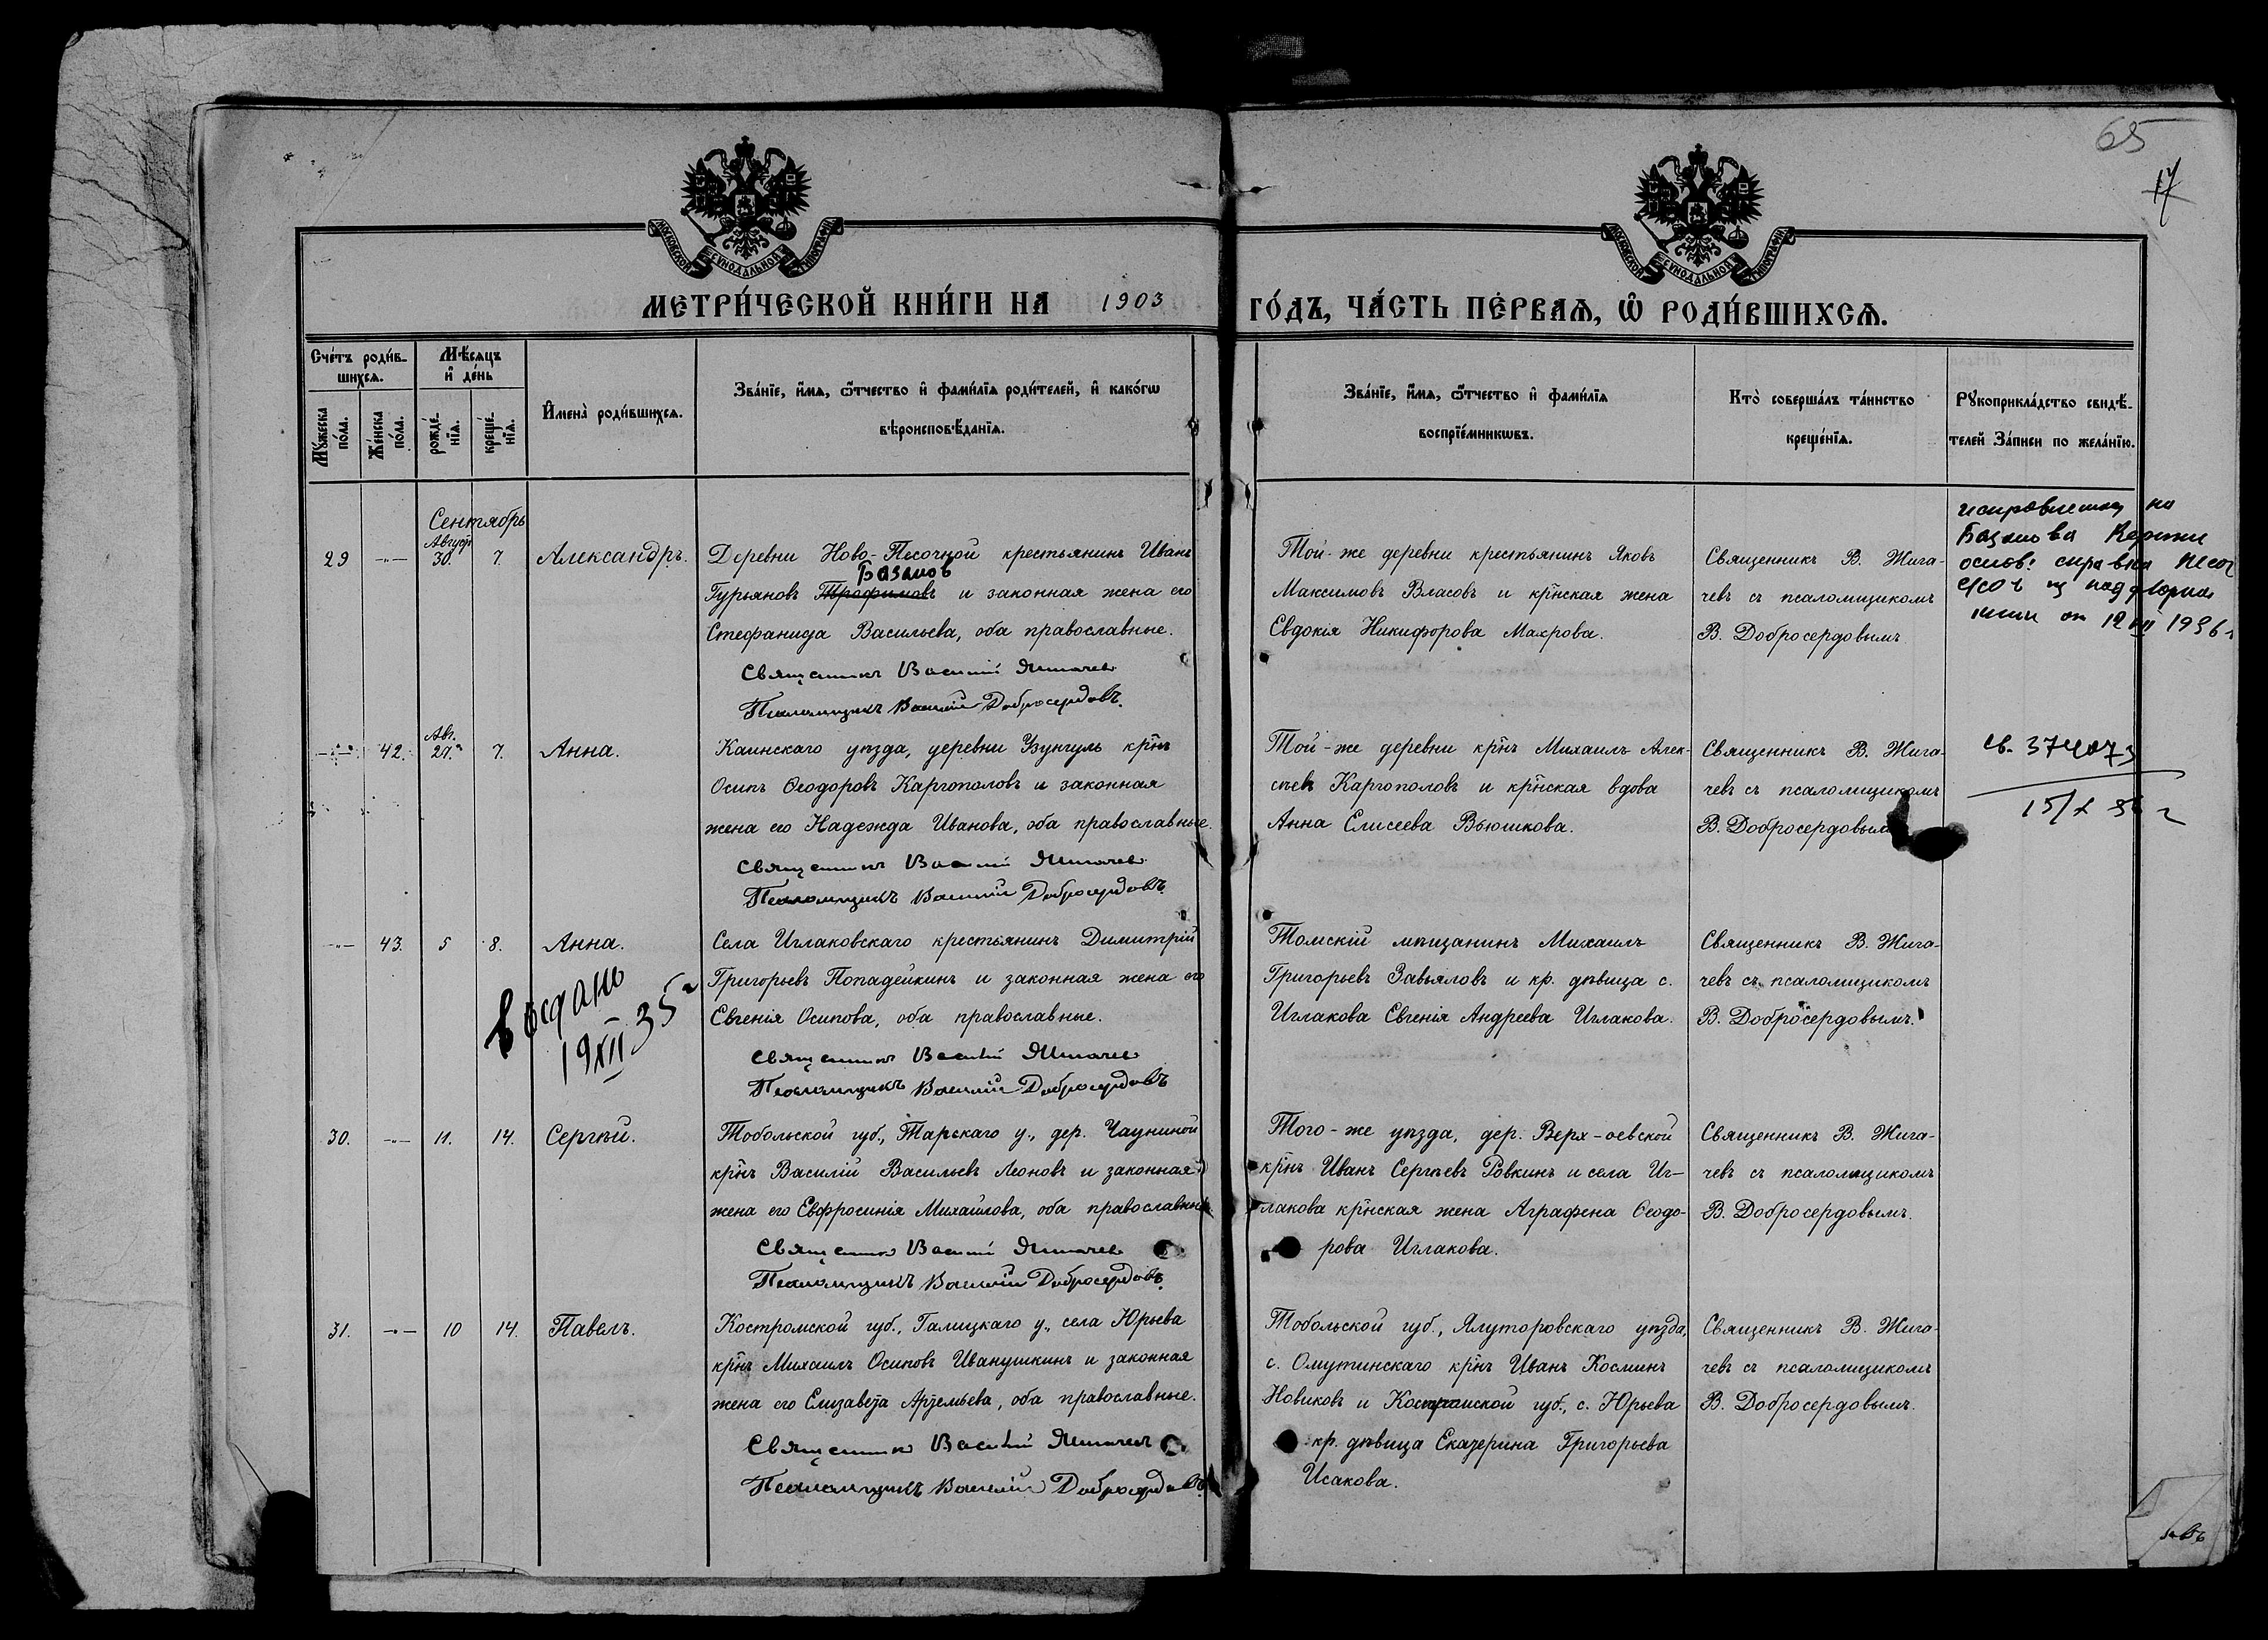 65
17
МОСКОВСКОЙ СѴНОДАЛЬНОЙ ТИПОГРАФІИ
МОСКОВСКОЙ СѴНОДАЛЬНОЙ ТИПОГРАФІИ
МЕТРИ́ЧЕСКОЙ КНИ́ГИ НА 1903 ГО́ДЪ, ЧА́СТЬ ПЕ́РВАѦ, Ѡ҆ РОДИ́ВШИХСѦ.
Сче́тъ роди́в-
шихсѧ.
Мꙋ́жеска по́ла.
Же́нска по́ла.
Мѣ́сѧцъ и҆ де́нь
рожде́-
нїѧ.
креще́-
нїѧ.
И҆мена̀ роди́вшихсѧ.
Зва́нїе, и҆́мѧ, ѻ҆́тчество и҆ фами́лїѧ роди́телей, и҆ како́гѡ
вѣроисповѣ́данїѧ.
Зва́нїе, и҆́мѧ, ѻ҆́тчество и҆ фами́лїѧ
воспрїе́мникѡвъ.
Кто̀ соверша́лъ та́инство
креще́нїѧ.
Рꙋкоприкла́дство свидѣ́-
телей За́писи по жела́нїю.
Сентябрь
29 -"- Август. 30. 7. Александръ.
Деревни Ново-Песочной крестьянинъ Иванъ
Базанов
Гурьяновъ Трофимовъ и законная жена его
Стефанида Васильева, оба православные.
Священникъ Василій Жигачев
Псаломщикъ Василій Добросердовъ.
Той-же деревни крестьянинъ Яковъ
Максимовъ Власовъ и кр̃нская жена
Евдокія Никифорова Махрова.
Священникъ В. Жига-
чевъ съ псаломщикомъ
В. Добросердовымъ
на
основ: справки
от 12 VII 1936 г
-"- 42. Авг. 27. 7. Анна.
Каинскаго уѣзда, деревни Узунгуль кр̃нъ
Осипъ Ѳеодоровъ Каргополовъ и законная
жена его Надежда Иванова, оба православные.
Священникъ Василій Жигачев
Псаломщикъ Василій Добросердовъ.
Той-же деревни кр̃нъ Михаилъ Алек-
сѣевъ Каргополовъ и кр̃нская вдова
Анна Елисеева Вьюшкова.
Священникъ В. Жига-
чевъ съ псаломщикомъ
В. Добросердовым
св. 374073
15/X 36 г
-"- 43. 5 8. Анна.
выдано
19 XII 35 г
Села Иглаковскаго крестьянинъ Димитрій
Григорьевъ Попадейкинъ и законная жена его
Евгенія Осипова, оба православные.
Священникъ Василій Жигачев
Псаломщикъ Василій Добросердовъ
Томскій мѣщанинъ Михаилъ
Григорьевъ Завьяловъ и кр. дѣвица с.
Иглакова Евгенія Андреева Иглакова.
Священникъ В. Жига-
чевъ съ псаломщикомъ
В. Добросердовымъ.
30. -"- 11. 14. Сергѣй.
Тобольской губ., Тарскаго у., дер. Чауниной
кр̃нъ Василій Васильевъ Леоновъ и законная
жена его Евфросинія Михайлова, оба православные
Священникъ Василій Жигачев
Псаломщикъ Василій Добросердовъ.
Того-же уѣзда, дер. Верх-оевской
кр̃нъ Иванъ Сергѣевъ Ровкинъ и села Иг-
лакова кр̃нская жена Аграфена Ѳеодо-
рова Иглакова.
Священникъ В. Жига-
чевъ съ псаломщикомъ
В. Добросердовымъ.
31. -"- 10 14. Павелъ.
Костромской губ., Галицкаго у., села Юрьева
кр̃нъ Михаилъ Осиповъ Иванушкинъ и законная
жена его Елизавета Артемьева, оба православные.
Священникъ Василій Жигачев
Псаломщикъ Василій Добросердовъ.
Тобольской губ., Ялуторовскаго уѣзда,
с. Омутинскаго кр̃нъ Иванъ Косминъ
Новиковъ и Костромской губ., с. Юрьева
кр. дѣвица Екатерина Григорьева
Исакова.
Священникъ В. Жига-
чевъ съ псаломщикомъ
В. Добросердовымъ.